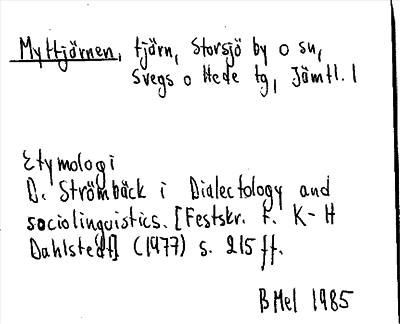 Myttjärnen, tjärn, Storsjö by o sn,
Svegs o Hede tg, Jämtl. l
Etymologi
D. Strömbäck i Dialectology and
sociolinguistics. [Festskr. f. K-H
Dahlstedt] (1977) s. 215 ff.
BMel 1985